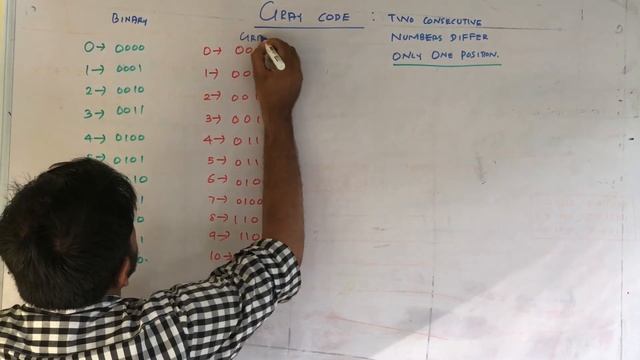 GRAY CODE : TWO CONSECUTIVE
NUMBERS DIFFER
ONLY ONE POSITION.
BINARY
0→ 0000
1→ 0001
2→ 0010
3→ 0011
4→ 0100
5→ 0101
0→ 00
1→ 00
2→ 00
3→ 001
4→ 011
5→ 011
6→ 010
7→ 0100
8→ 110
9→ 110
10→